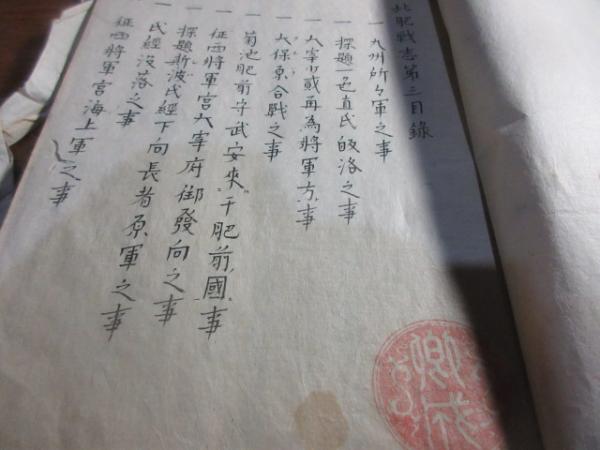 北肥戦志第三目録
一 九州所々軍之事
一 探題一色直氏皈洛之事
一 大宰少貳再為將軍方事
一 大保東合戰之事
一 菊池肥前守武安來于肥前國事
一 征西將軍宮大宰府御發向之事
一 探題斯波氏經下向長者原軍之事
一 氏經没落之事
一 征西將軍宮海上軍之事